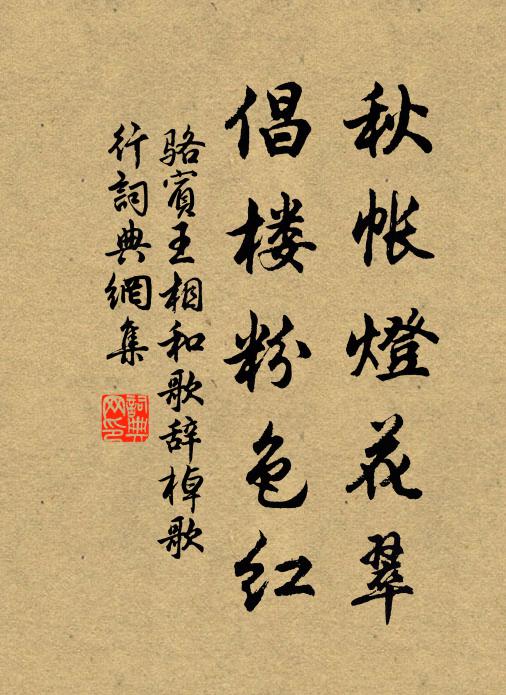 秋帐燈花翠
倡楼粉色红
骆賓王相和歌辞棹歌
行詞典網集
詞典网印